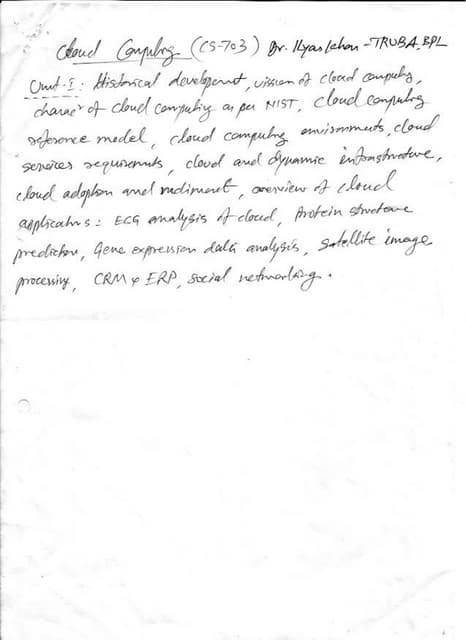 Cloud Computing (CS-703) Dr. Ilyas Khan - TRUBA, BPL
Unit-I: Historical development, vission of cloud computing,
charac^r of cloud computing as per NIST, cloud computing
reference model, cloud computing environments, cloud
services requirements, cloud and dynamic infrastructure,
cloud adoption and rudiment, overview of cloud
applications: ECG analysis of cloud, Protein structure
prediction, Gene expression data analysis, satellite image
processing, CRM & ERP, social networking.